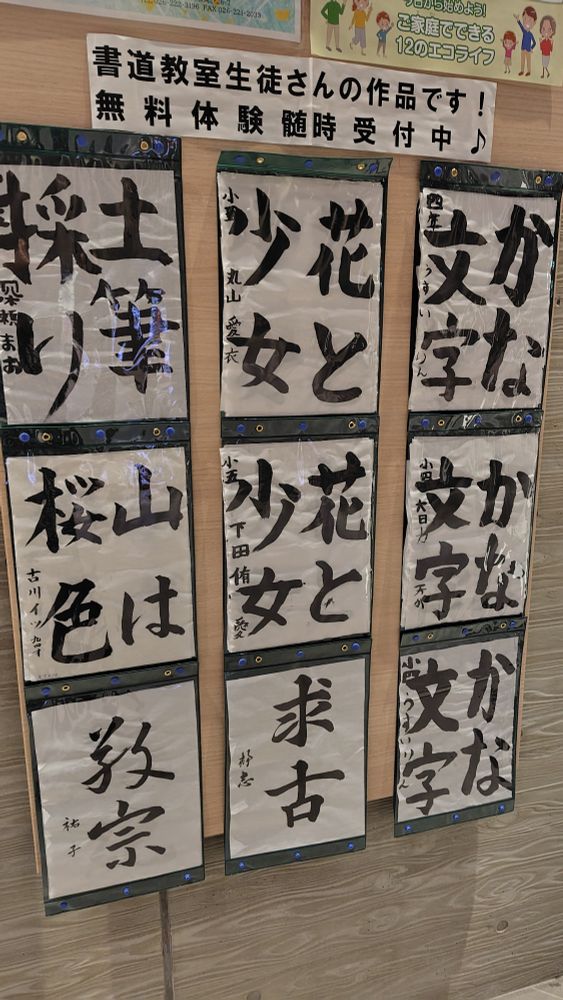 026-222-3196 FAX 026-221-2039
今日から始めよう!
ご家庭でできる
12のエコライフ
書道教室生徒さんの作品です!
無料体験髄時受付中♪
かな
文字
四年 うすい りん
花と
少女
小五 丸山 愛衣
土筆
採り
かな
文字
小四
花と
少女
小五 下田侑愛
山は
桜色
古川イツ
かな
文字
小四 うすいりん
求古
祐子